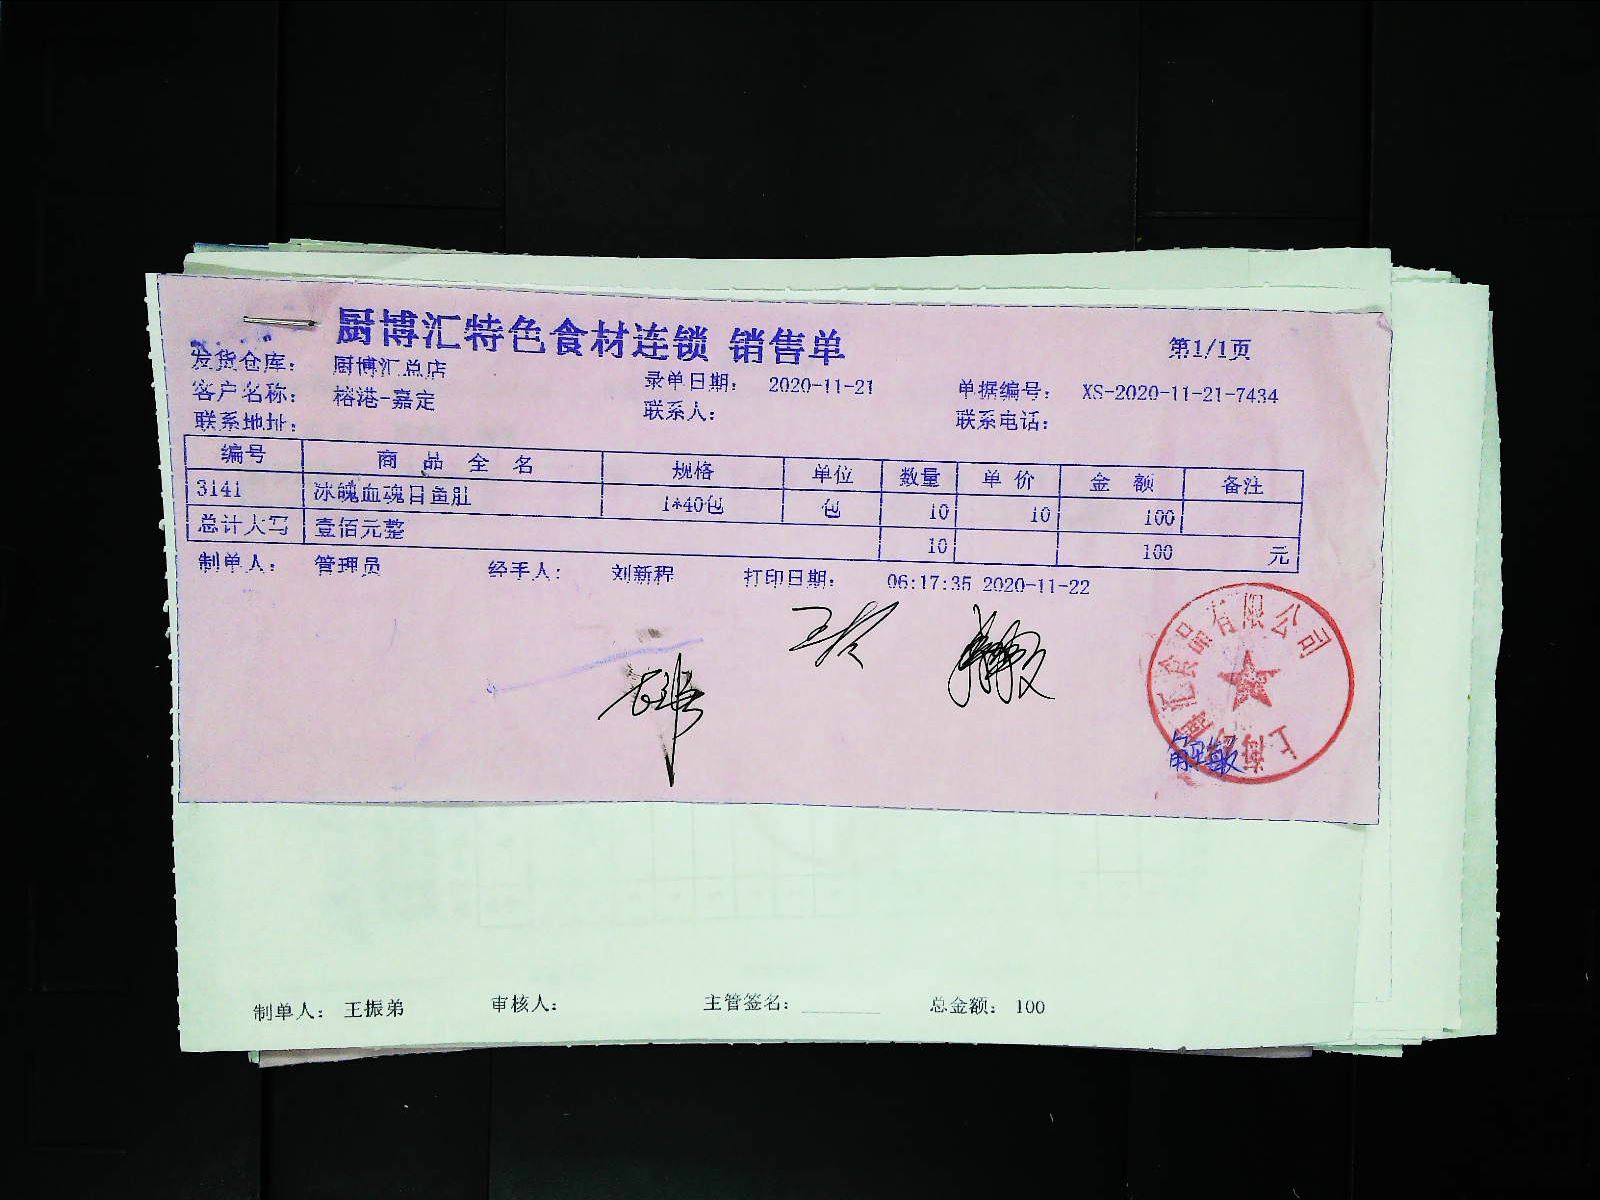 厨博汇特色食材连锁 销售单
第1/1页
发货仓库: 厨博汇总店
录单日期: 2020-11-21
单据编号: XS-2020-11-21-7434
客户名称: 榕港-嘉定
联系人:
联系电话:
联系地址:
编号 商品全名 规格 单位 数量 单价 金额 备注
3141 冰魄血魂目鱼肚 1*40包 包 10 10 100
总计大写 壹佰元整 10 100 元
制单人: 管理员 经手人: 刘新程 打印日期: 06:17:35 2020-11-22
上海厨博汇食品有限公司
制单人: 王振弟 审核人: 主管签名: 总金额: 100